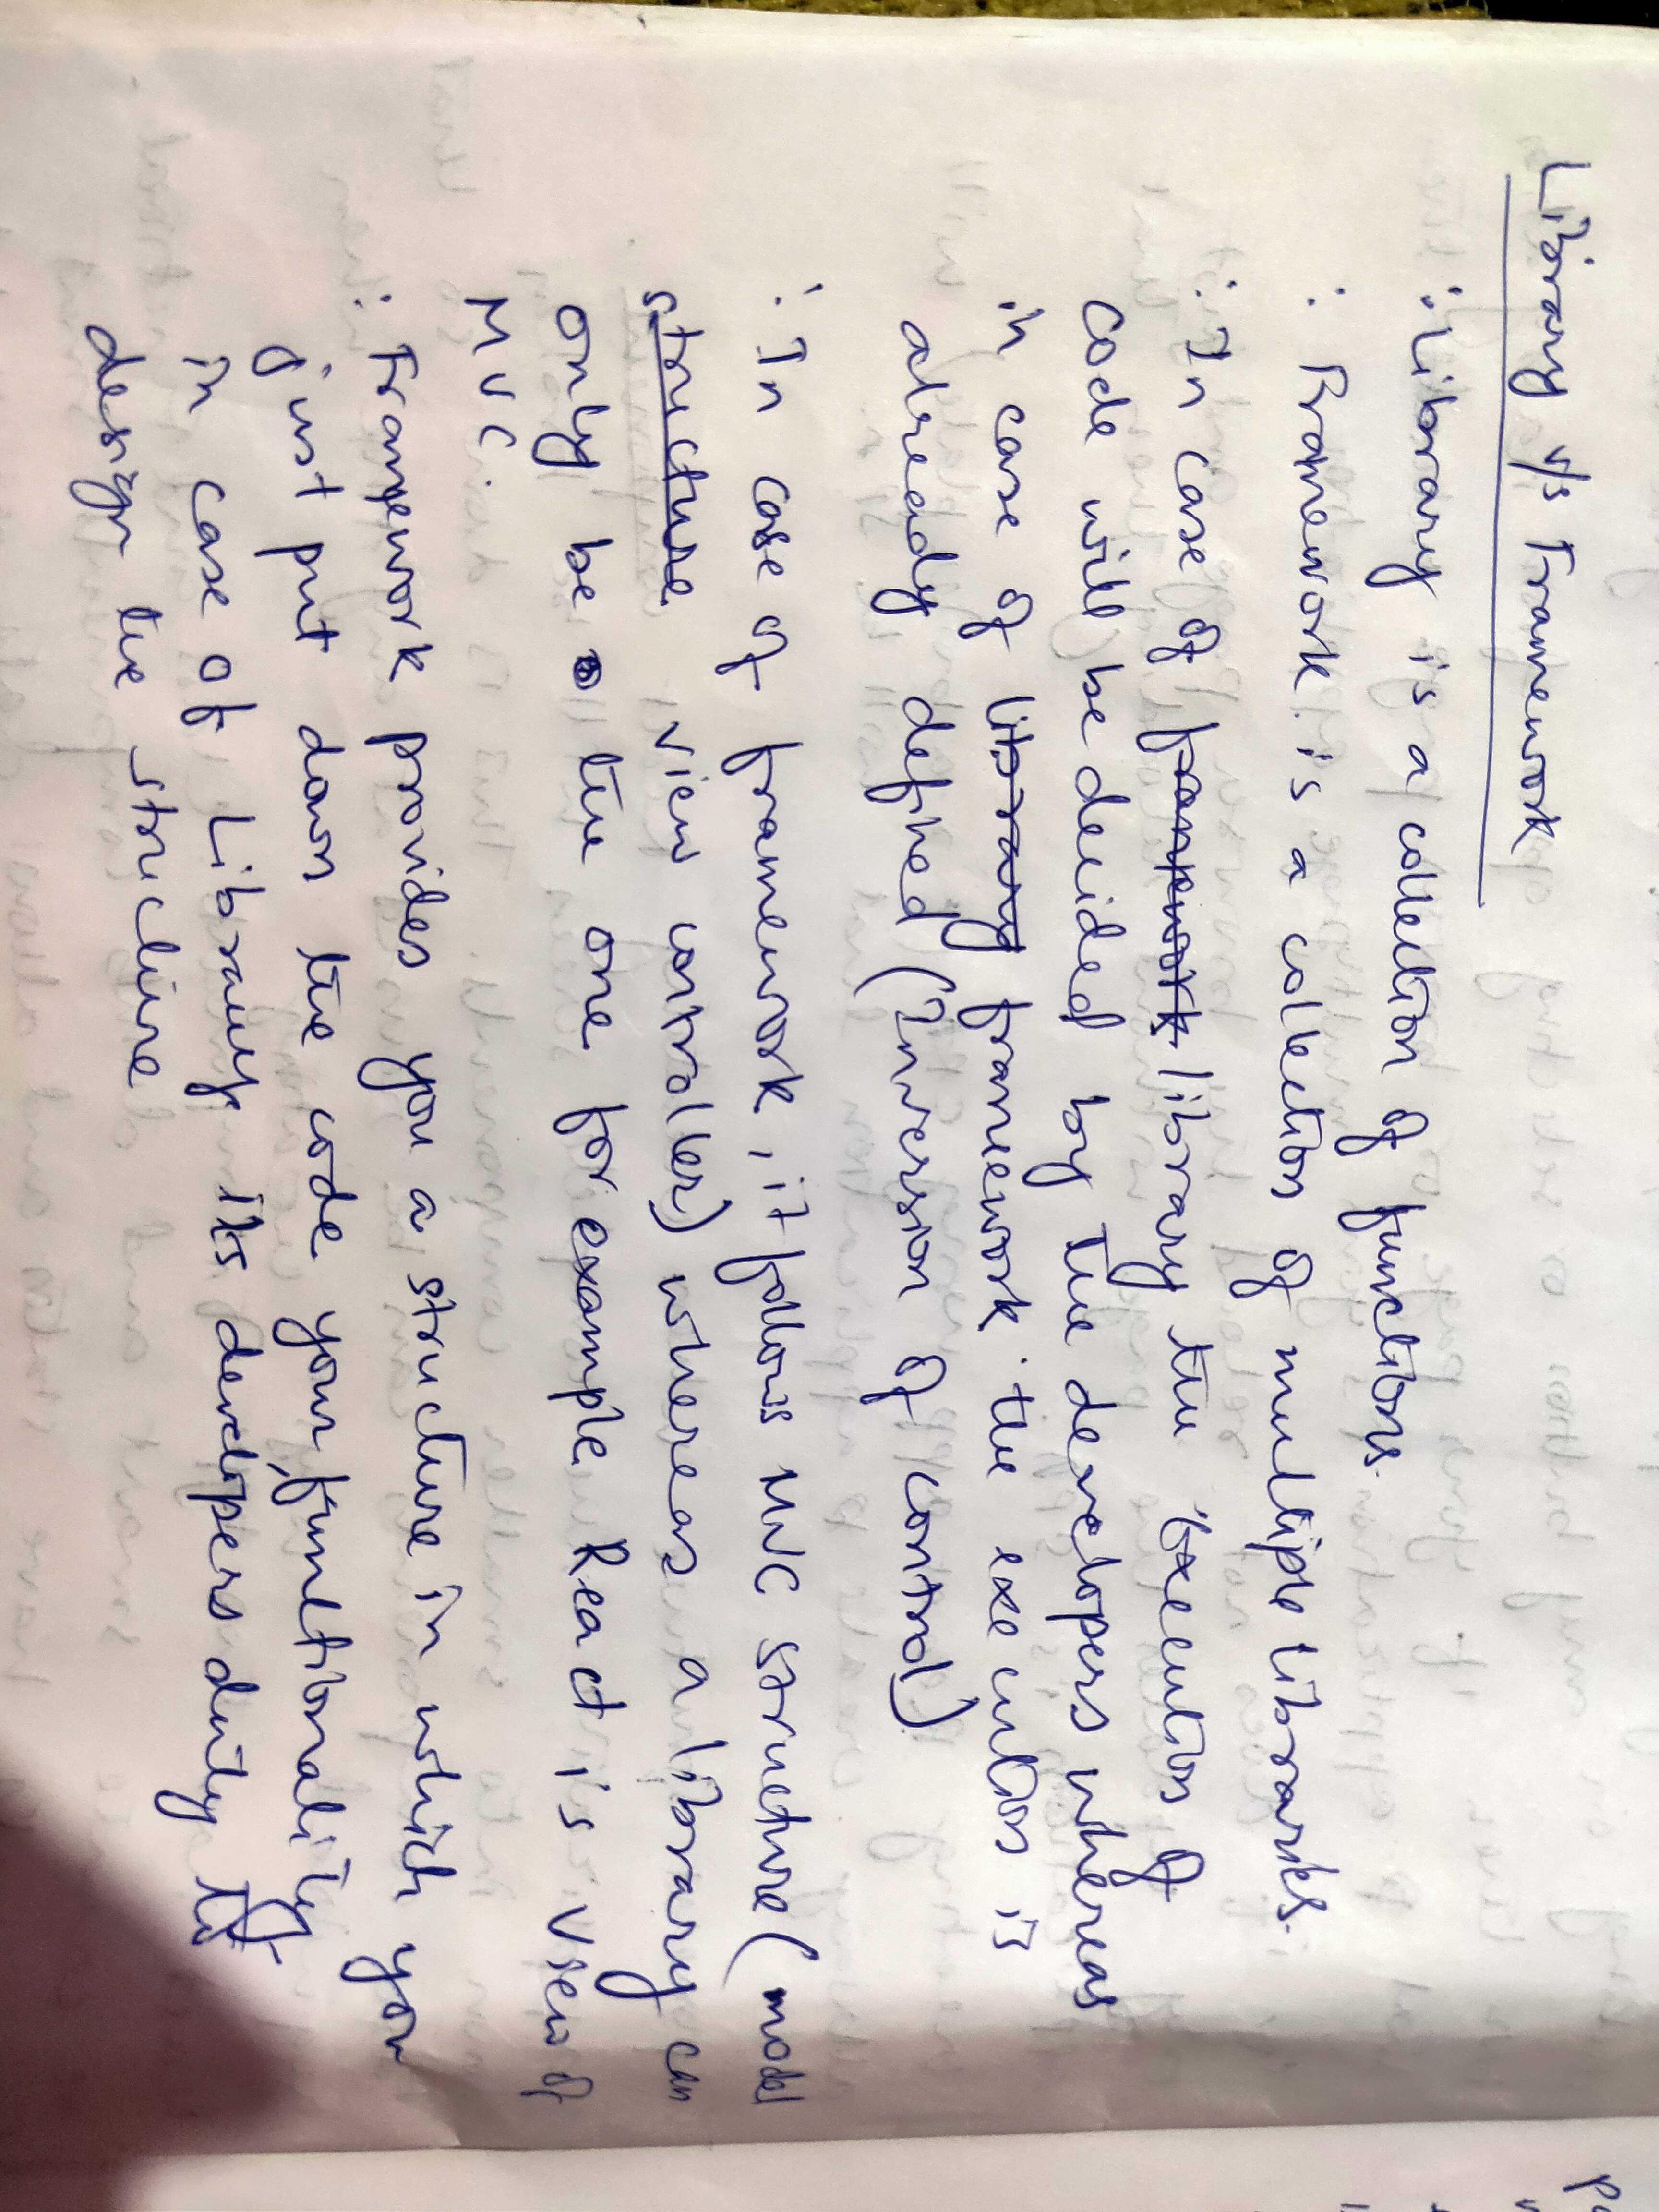 Library v/s Framework
: Library is a collection of functions.
: Framework is a collection of multiple libraries.
: In case of framework library the Execution of
code will be decided by the developers whereas
in case of library framework the execution is
already defined (Inversion of control)
: In case of framework, it follows MVC structure (model
structure view controller) whereas a library can
only be the one for example React is View of
MVC.
: Framework provides you a structure in which you
just put down the code your functionality,
in case of Library its developers duty to
design the structure